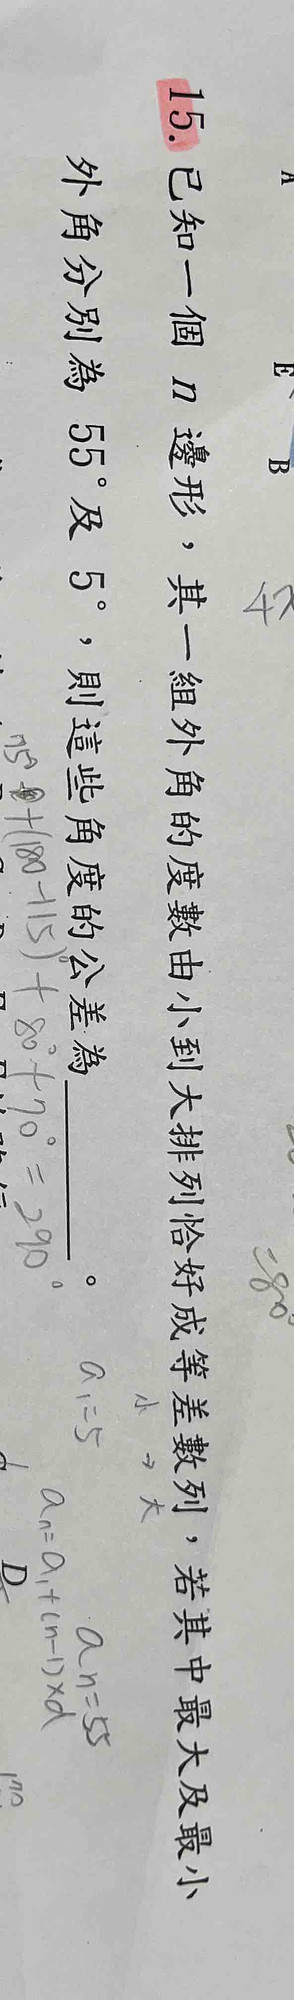 A
E
B
=80°
15. 已知一個 n 邊形,其一組外角的度數由小到大排列恰好成等差數列,若其中最大及最小
小→大
外角分別為 55°及 5°,則這些角度的公差為______。
a₁=5
aₙ=55
aₙ=a₁+(n-1)×d
+(180-115)°+80°+70°=290°
D